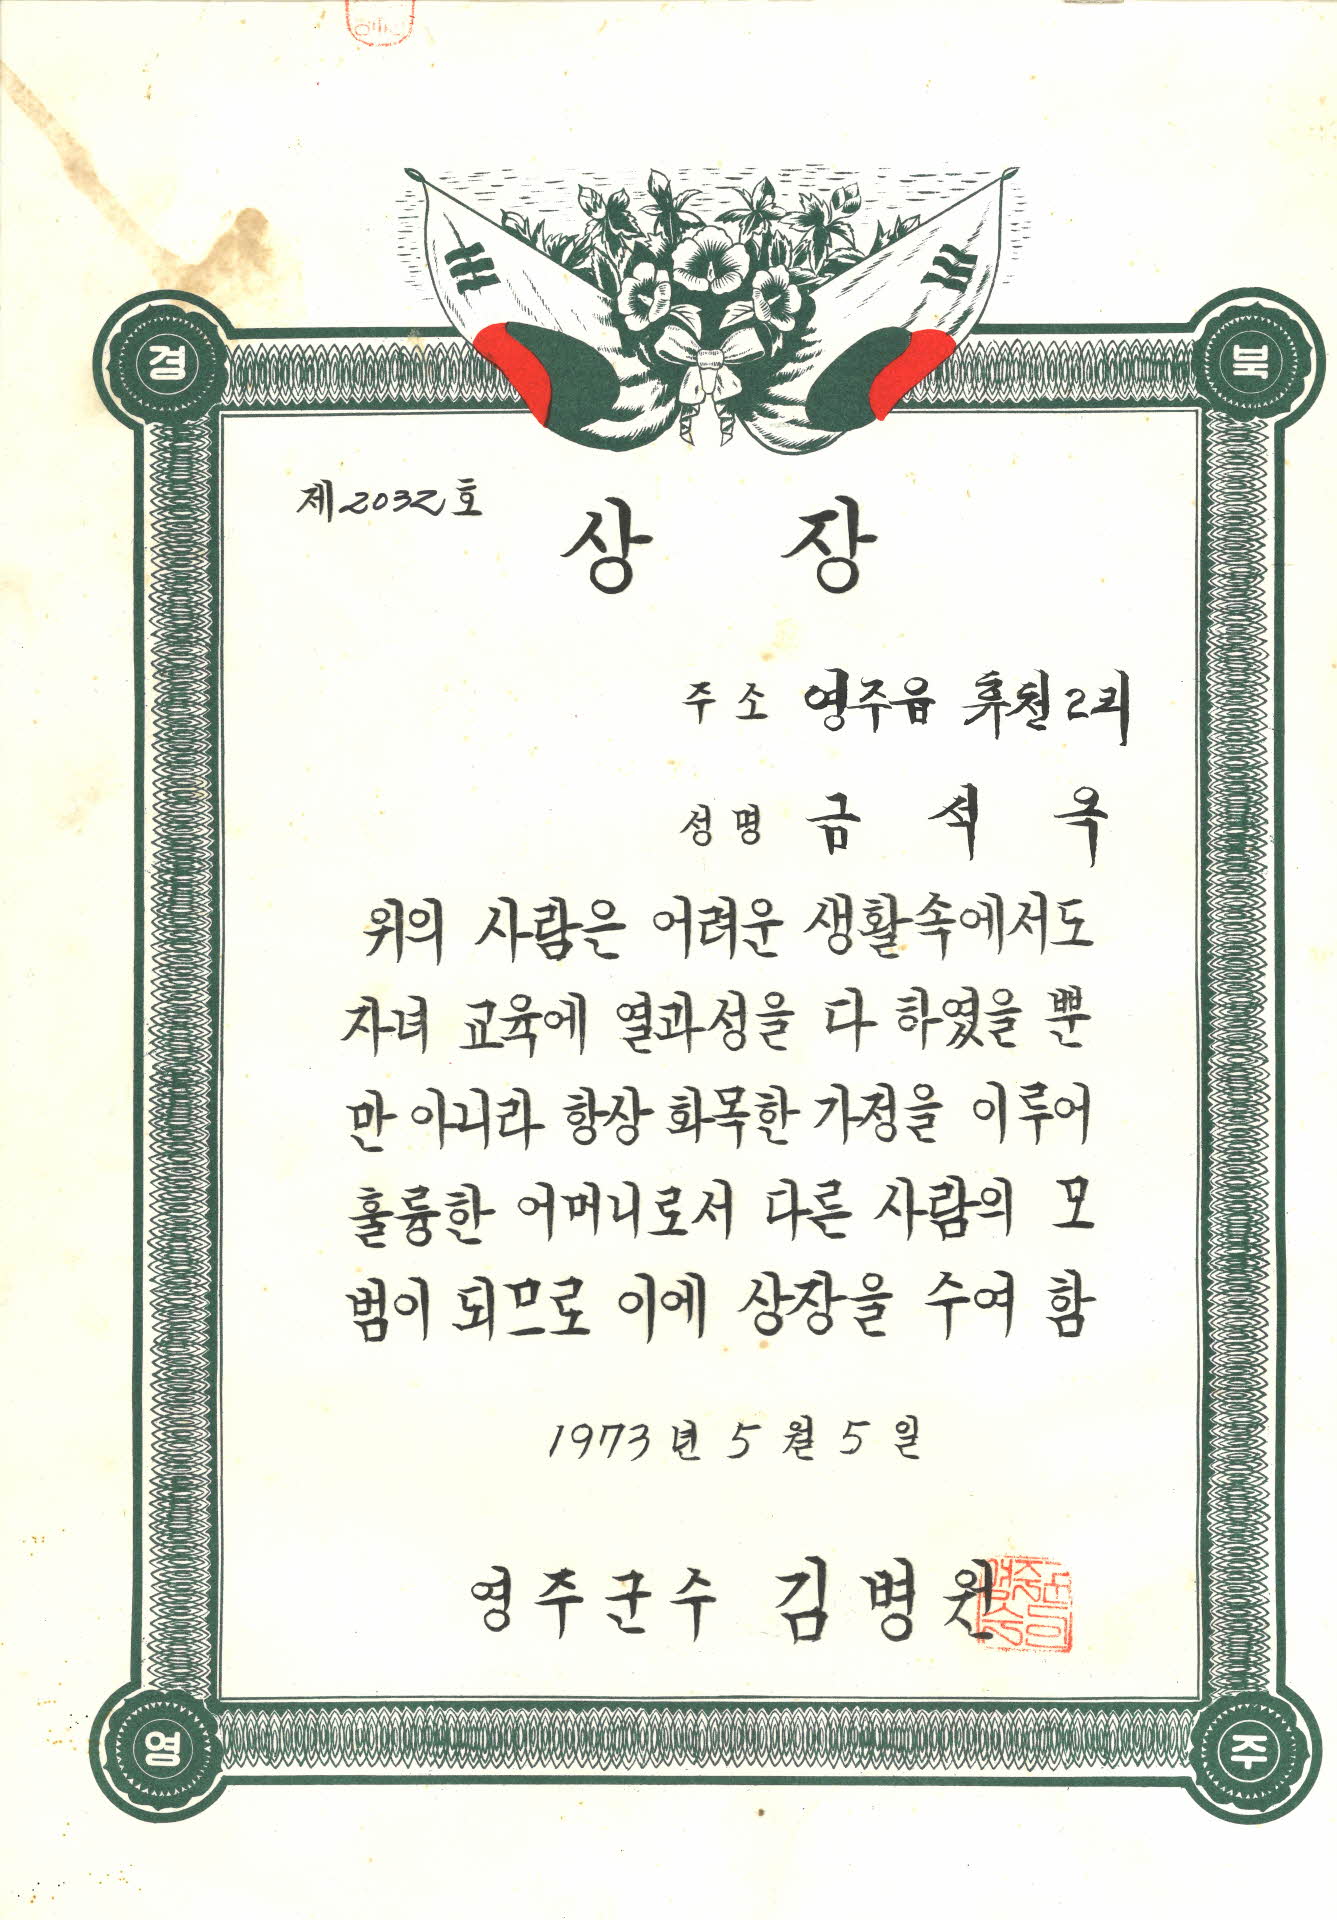 경 북
제2032호
상 장
주소 영주읍 휴천2리
성명 금 석 옥
위의 사람은 어려운 생활속에서도
자녀 교육에 열과성을 다 하였을 뿐
만 아니라 항상 화목한 가정을 이루어
훌륭한 어머니로서 다른 사람의 모
범이 되므로 이에 상장을 수여 함
1973년 5월 5일
영주군수 김병원
영 주